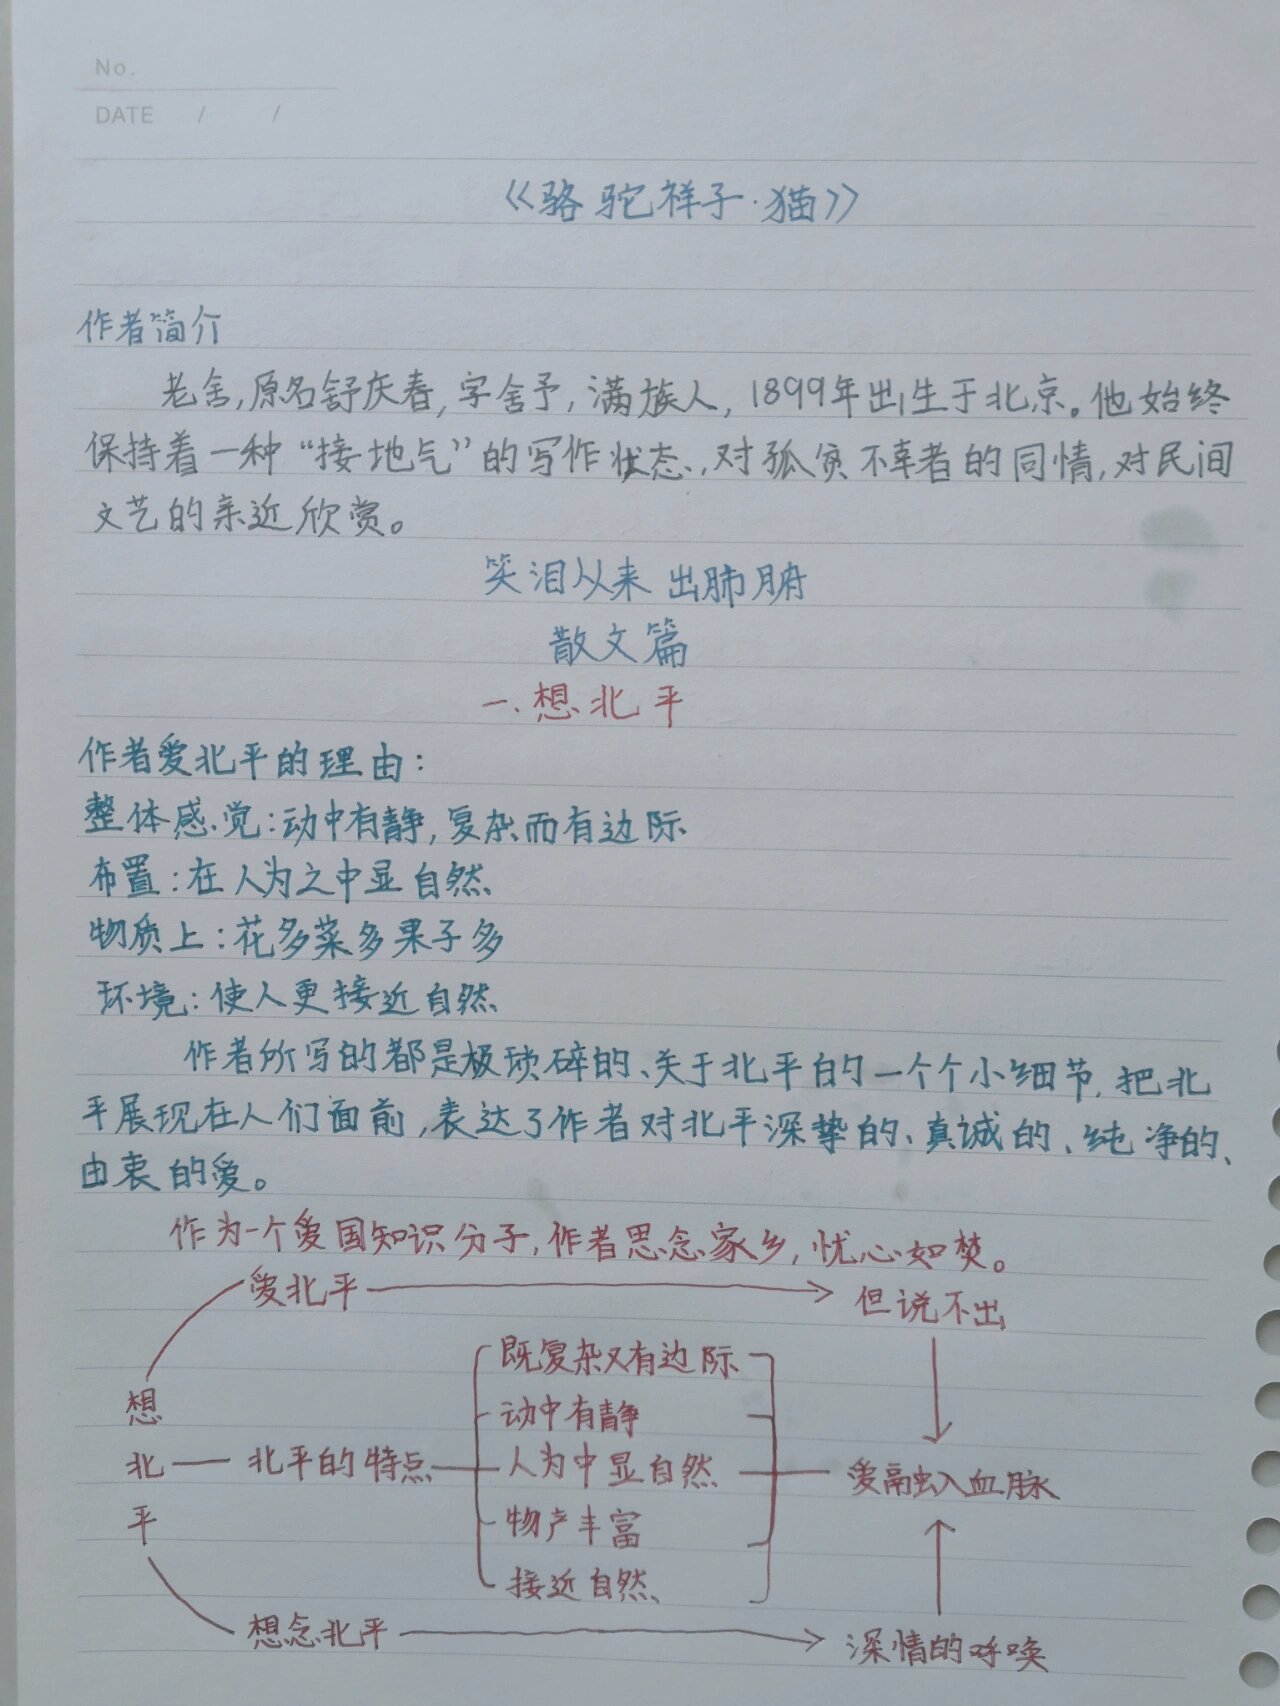 No.
DATE / /
《骆驼祥子·猫》
作者简介
老舍,原名舒庆春,字舍予,满族人,1899年出生于北京。他始终
保持着一种“接地气”的写作状态,对孤贫不幸者的同情,对民间
文艺的亲近欣赏。
笑泪从来出肺腑
散文篇
一、想北平
作者爱北平的理由:
整体感觉:动中有静,复杂而有边际
布置:在人为之中显自然
物质上:花多菜多果子多
环境:使人更接近自然
作者所写的都是极琐碎的、关于北平的一个个小细节,把北
平展现在人们面前,表达了作者对北平深挚的、真诚的、纯净的、
由衷的爱。
作为一个爱国知识分子,作者思念家乡,忧心如焚。
爱北平
但说不出
既复杂又有边际
想
动中有静
北
北平的特点
人为中显自然
爱融入血脉
平
物产丰富
接近自然
想念北平
深情的呼唤